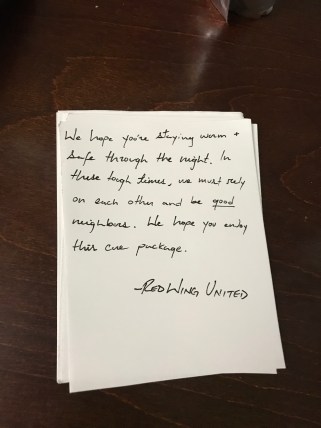 We hope you're staying warm +
safe through the night. In
these tough times, we must rely
on each other and be good
neighbors. We hope you enjoy
this care package.
-RED WING UNITED